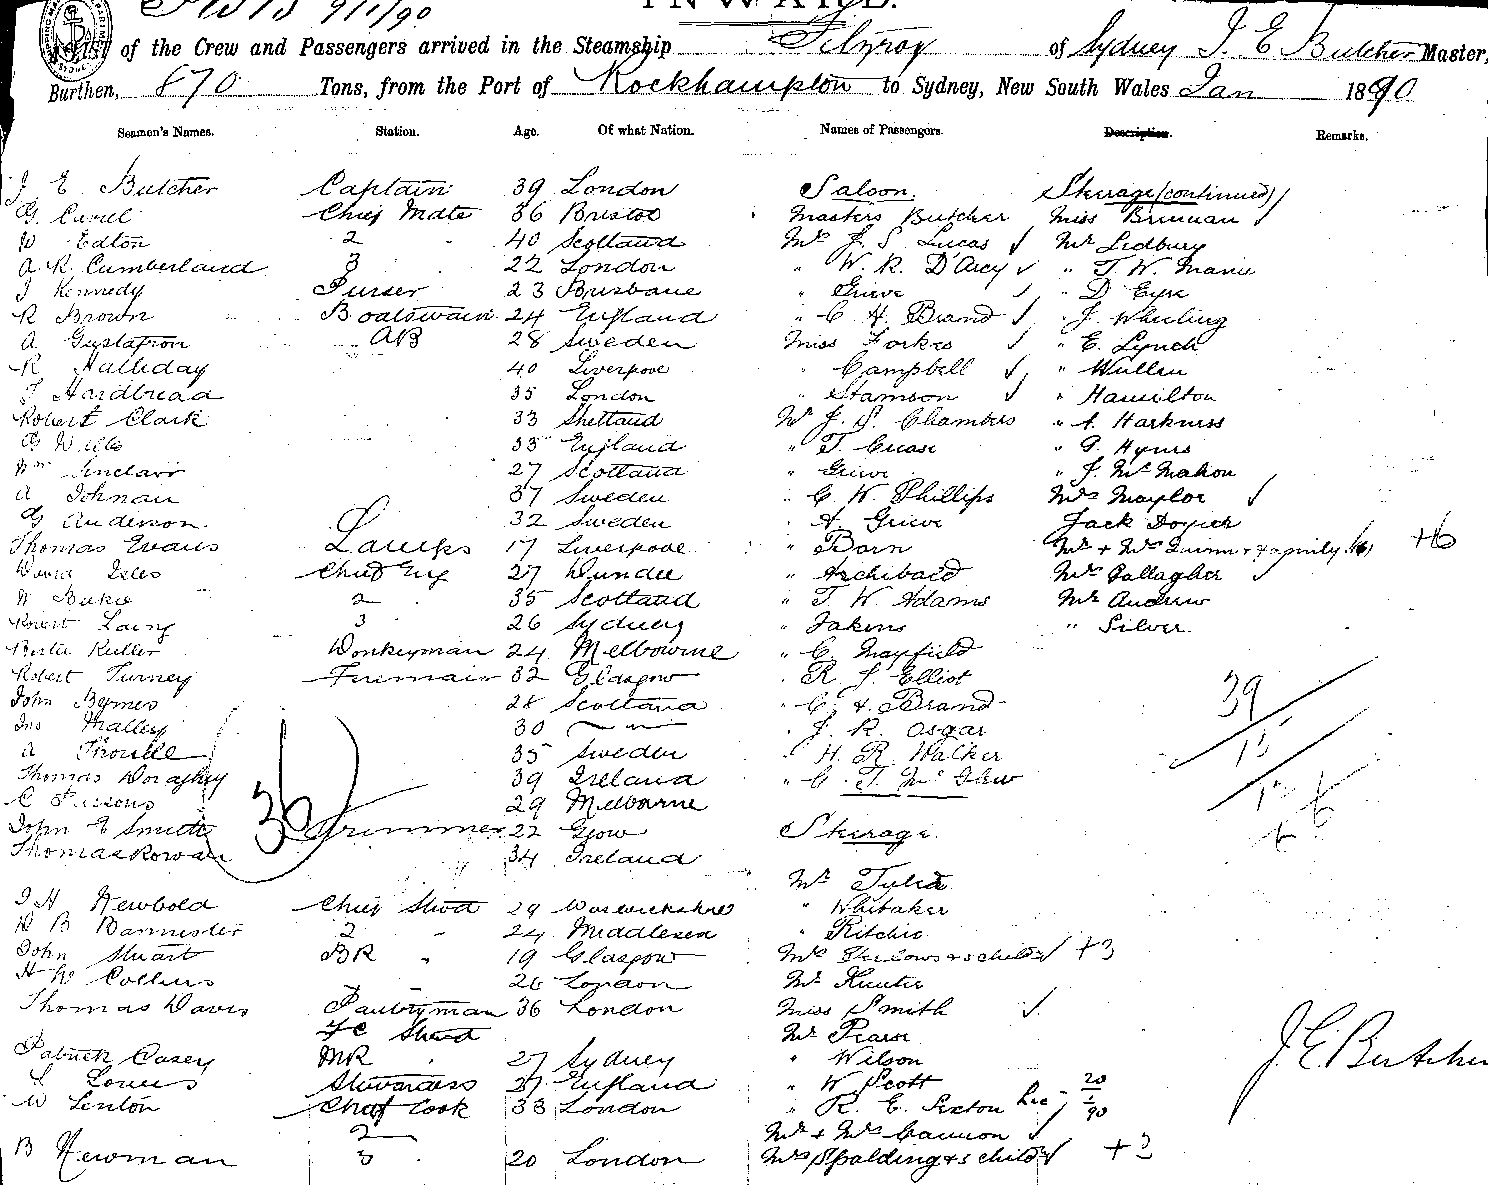 9/1/90
INWARD.
List of the Crew and Passengers arrived in the Steamship Fitzroy of Sydney J. E Butcher Master,
Burthen, 870 Tons, from the Port of Rockhampton to Sydney, New South Wales Jan 1890
Seamen's Names. Station. Age. Of what Nation. Names of Passengers. Description. Remarks.
J E Butcher Captain 39 London Saloon. Steerage (continued)
G. Cavell Chief Mate 36 Bristol Masters Butcher Miss Brennan
W Edton 2 " 40 Scotland Mrs J. S. Lucas Mr Ledbury
A. R. Cumberland 3 22 London " W. R. D'Arcy " T. W. Marie
J Kennedy Purser 23 Brisbane " Grieve " D Eyre
R Brown Boatswain 24 England " C H. Brand " J Wheeling
A Gustafson AB 28 Sweden Miss Forbes " E. Lynch
R Halliday 40 Liverpool " Campbell " Wullen
T Hardbread 35 London " Stamson " Hamilton
Robert Clark 33 Shetland Mr J. S. Chambers " A. Harkness
G Wills 33 England " T. Cuase " G. Hynes
Wm Sinclair 27 Scotland " Grieve " J. McMahon
A Johnan 37 Sweden " C. W. Phillips Mrs Maylor
G Anderson. 32 Sweden " A. Grieve Jack
Thomas Evans Lamps 17 Liverpool " Barn Mr + Mrs Quinn + family (6) +6
David Isles Chief Eng 27 Dundee " Archibald Mrs Gallagher
W Bake 2 35 Scotland " T. W. Adams Mr Andrew
Robert Laing 3 26 Sydney " Jakens " Silver.
Bertie Ruller Donkeyman 24 Melbourne " C. Mayfield
Robert Turney Fireman 32 Glasgow " R. J. Elliot
John Byrnes 28 Scotland " C. H. Brand 39
Jno Malley 30 " J. R. Osgar
A Thouille 35 Sweden " H. R. Walker 15
Thomas Doraghey 39 Ireland " C. T. McGlew
C Pissons 29 Melbourne 12 6
John E Smith 36 Trimmer 22 Steerage. 6
Thomas Rowan " 34 Ireland
Mr Tylie
J H Newbold Chief Stwd 29 Warwickshire " Whitaker
D B Bannister 2 " 24 Middlesex " Ritchie
John Stuart BR " 19 Glasgow Mrs + 3 child +3
H W Collins 26 London Mr Hunter
Thomas Davis Pantryman 36 London Miss Smith
FC Stwd Mr Pearse
Patrick Casey MR " 27 Sydney " Wilson J. E. Butcher
L Lowes Stewardess 37 England " W Scott
W Lenton Chief Cook 33 London " R. E. Sexton 20/1/90
2 Mr + Mrs Cannon
B Newman 3 20 London Mrs Spalding + 3 child +3